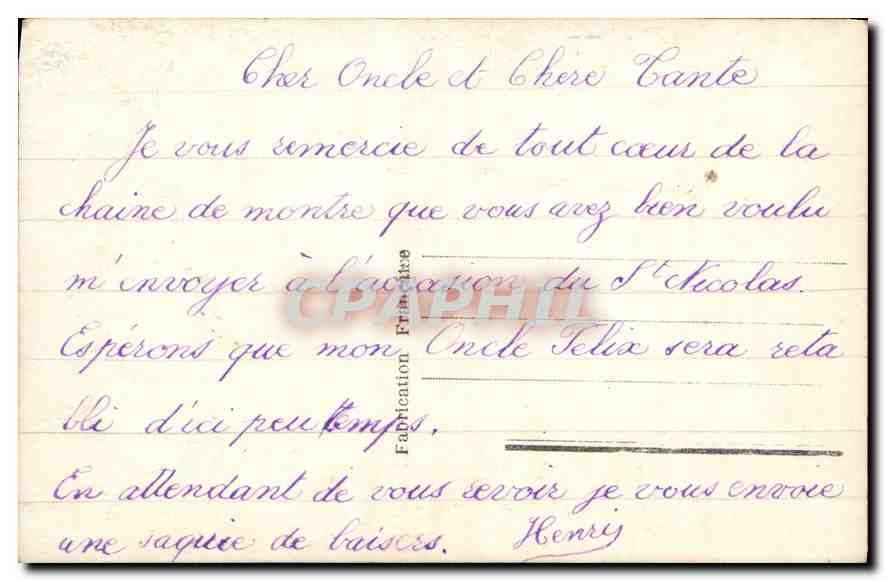 Cher Oncle et Chère Tante
Je vous remercie de tout cœur de la
chaine de montre que vous avez bien voulu
m'envoyer à l'occasion du St Nicolas.
Espérons que mon Oncle Felix sera reta
bli d'ici peu temps.
En attendant de vous revoir je vous envoie
une saquie de baisers. Henry
Fabrication Française
CPAPHIL